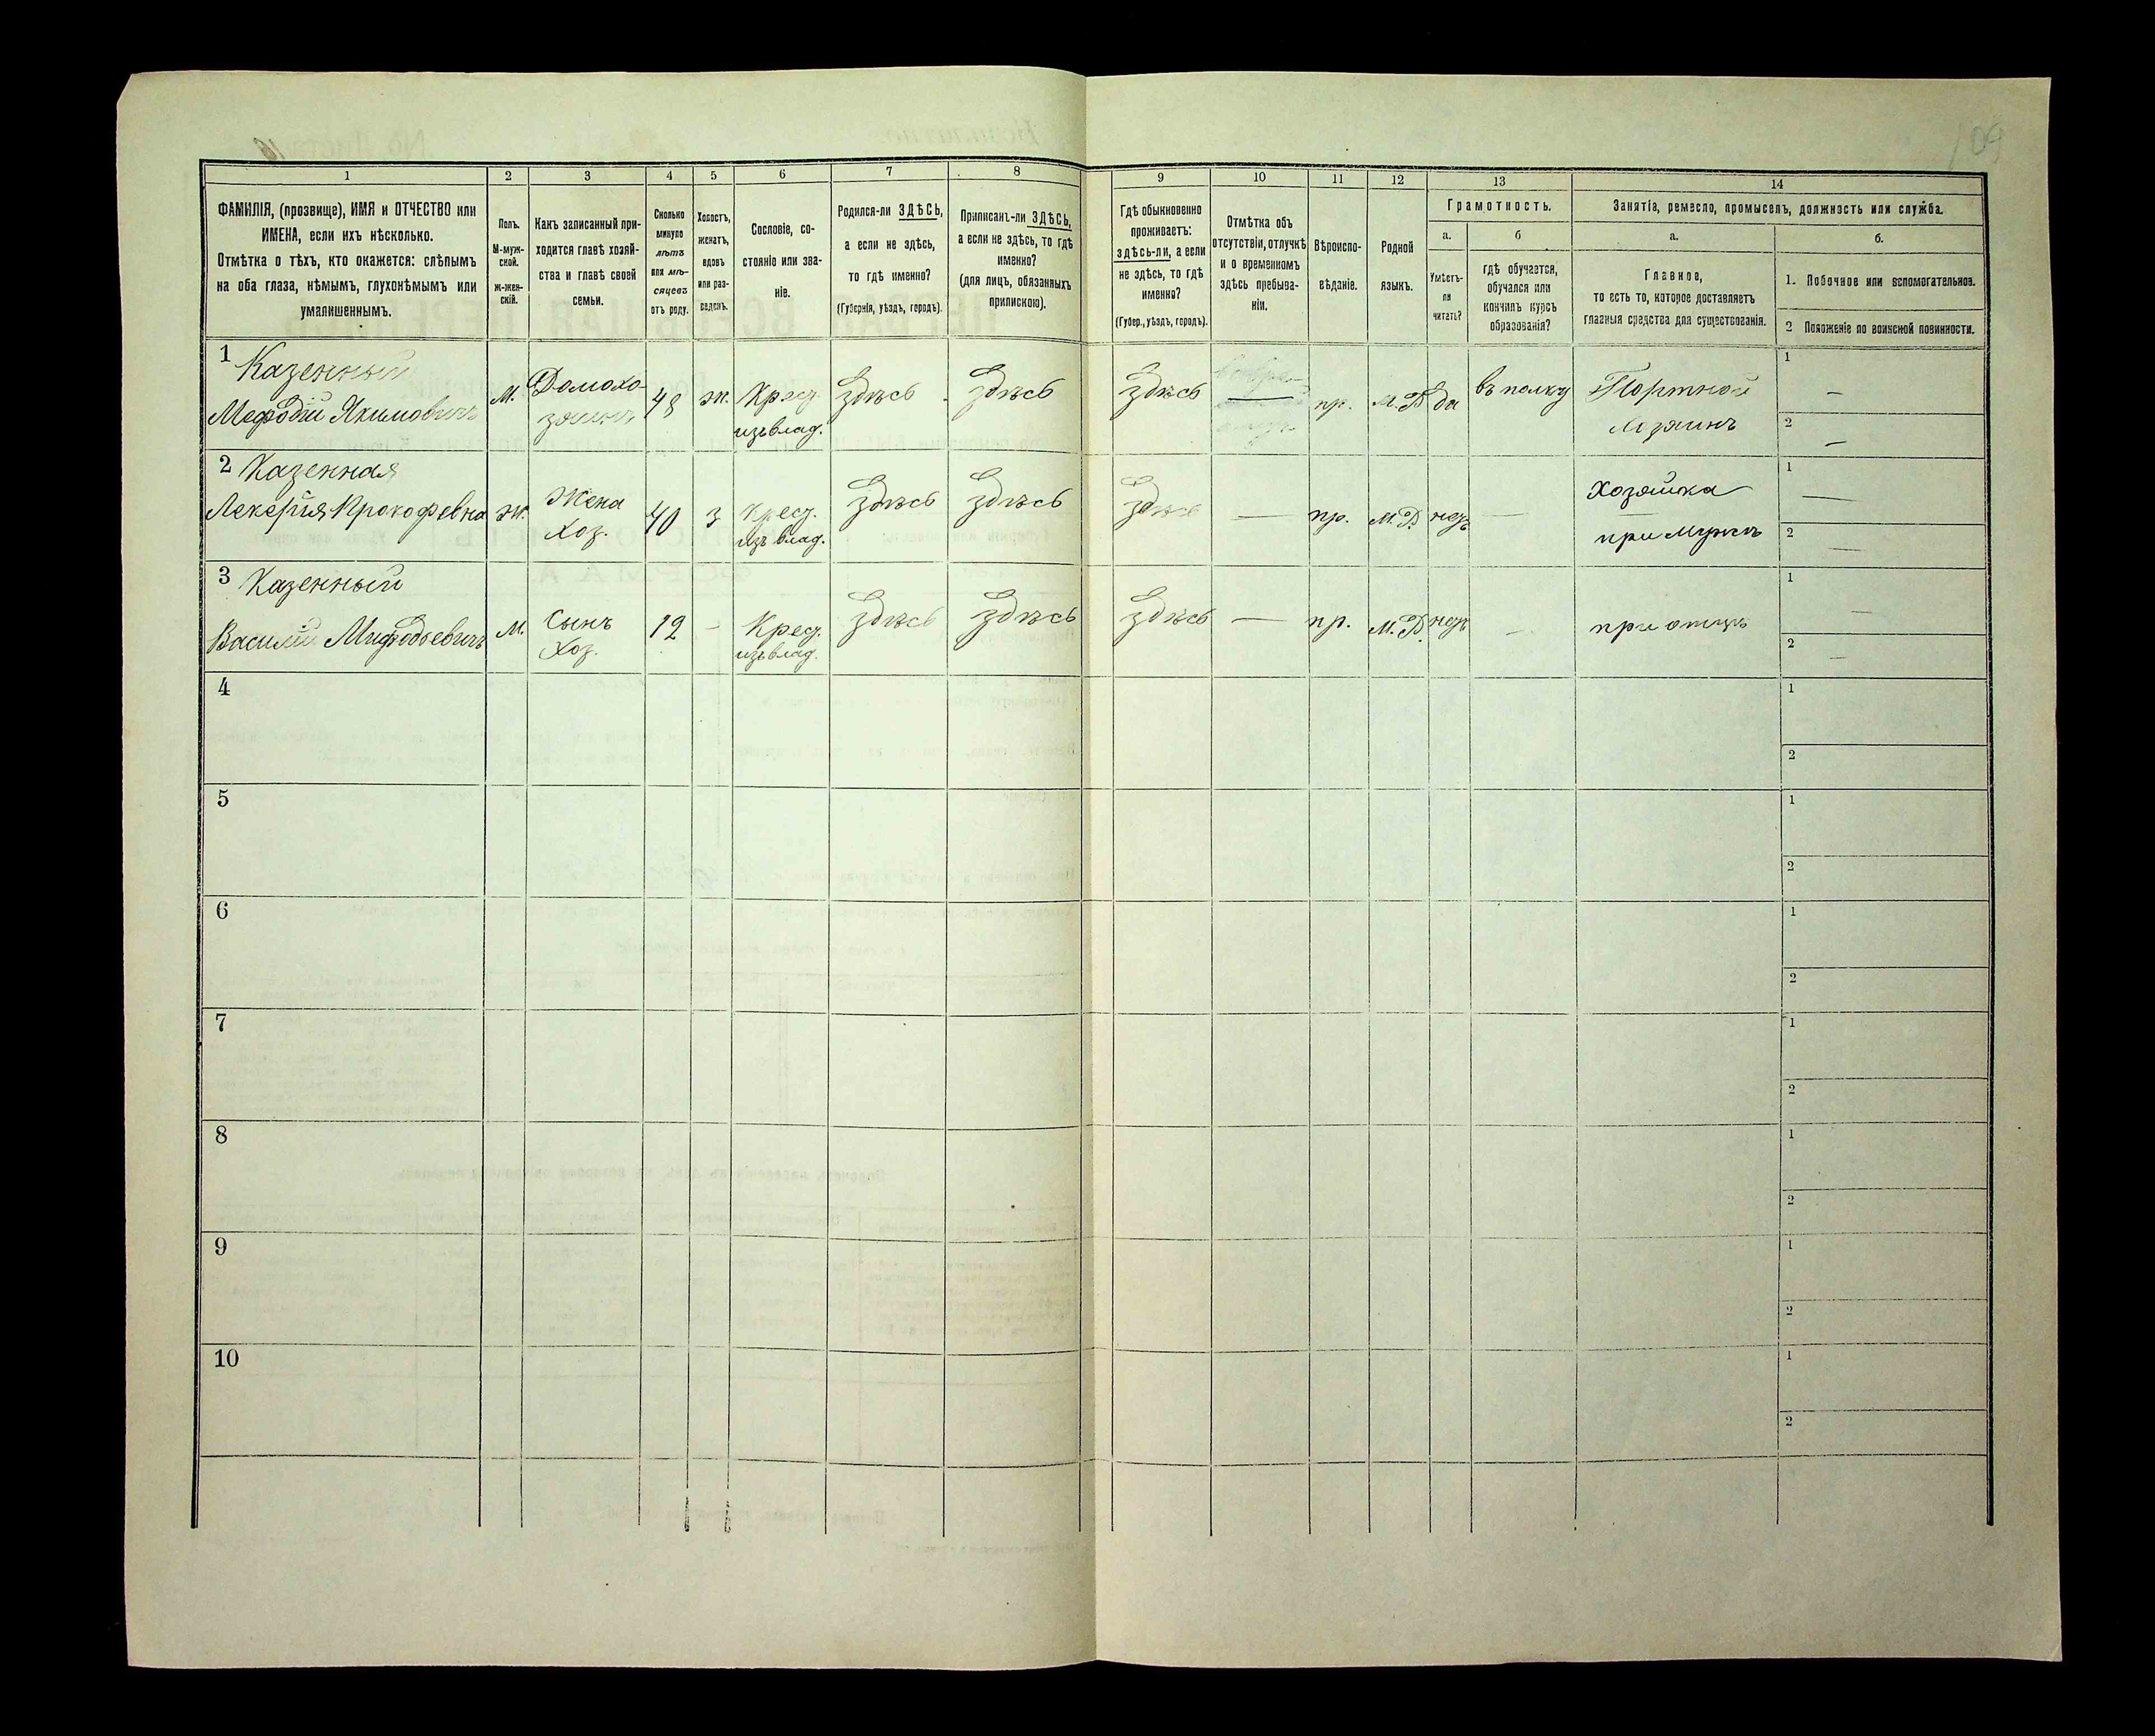 109
1
2
3
4
5
6
7
8
9
10
11
12
13
14
ФАМИЛІЯ, (прозвище), ИМЯ и ОТЧЕСТВО или
ИМЕНА, если ихъ нѣсколько.
Отмѣтка о тѣхъ, кто окажется: слѣпымъ
на оба глаза, нѣмымъ, глухонѣмымъ или
умалишеннымъ.
Полъ.
М-муж-
ской.
ж-жен-
скій.
Какъ записанный при-
ходится главѣ хозяй-
ства и главѣ своей
семьи.
Сколько
минуло
лѣтъ
или мѣ-
сяцевъ
отъ роду.
Холостъ,
женатъ,
вдовъ
или раз-
веденъ.
Сословіе, со-
стояніе или зва-
ніе.
Родился-ли ЗДѢСЬ,
а если не здѣсь,
то гдѣ именно?
(Губернія, уѣздъ, городъ).
Приписанъ-ли ЗДѢСЬ,
а если не здѣсь, то гдѣ
именно?
(для лицъ, обязанныхъ
припискою).
Гдѣ обыкновенно
проживаетъ:
здѣсь-ли, а если
не здѣсь, то гдѣ
именно?
(Губер., уѣздъ, городъ).
Отмѣтка объ
отсутствіи, отлучкѣ
и о временномъ
здѣсь пребыва-
ніи.
Вѣроиспо-
вѣданіе.
Родной
языкъ.
Грамотность.
а.
б
Умѣетъ-
ли
читать?
гдѣ обучается,
обучался или
кончилъ курсъ
образованія?
Занятія, ремесло, промыселъ, должность или служба.
а.
б.
Главное,
то есть то, которое доставляетъ
главныя средства для существованія.
1. Побочное или вспомогательное.
2 Положеніе по воинской повинности.
1 Казенный
Мефодій Якимовичъ
М.
Домохо-
зяинъ
48
ж.
Крест.
изъ влад.
здѣсь
здѣсь
здѣсь
—
пр.
М. Р.
да
въ полку
Портной
1
—
2
—
2 Казенная
Лекерія Прокофевна
Ж.
Жена
Хоз.
40
з
Крест.
изъ влад.
здѣсь
здѣсь
здѣсь
—
пр.
М. Р.
нетъ
—
Хозяйка
при мужѣ
1
—
2
—
3 Казенный
Василій Мифодьевичъ
М.
Сынъ
Хоз.
12
-
Крест.
изъ влад.
здѣсь
здѣсь
здѣсь
—
пр.
М. Р.
нетъ
—
при отцѣ
1
—
2
—
4
1
2
5
1
2
6
1
2
7
1
2
8
1
2
9
1
2
10
1
2